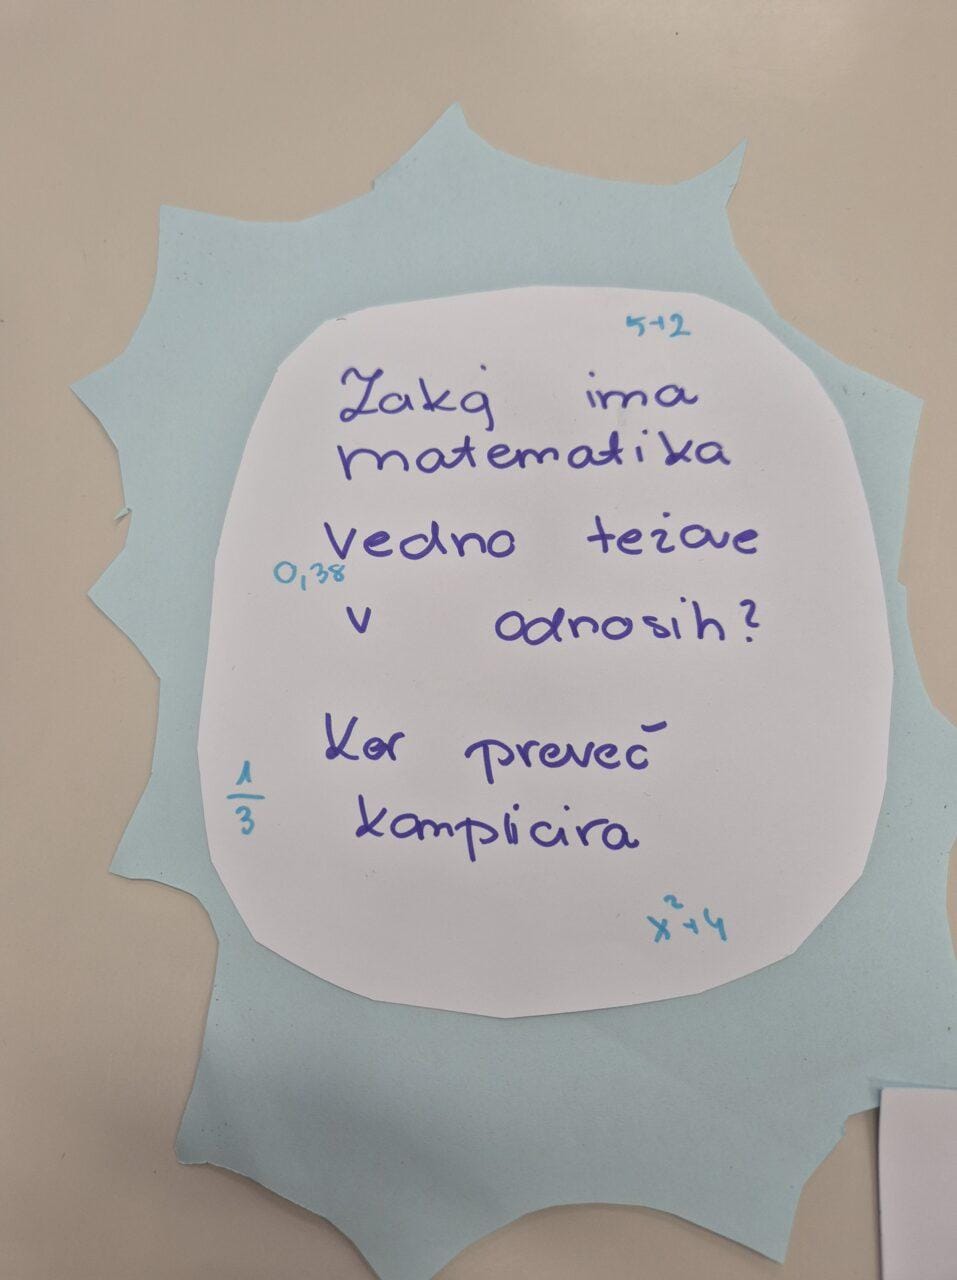 5+2
Zakaj ima
matematika
vedno težave
0,38
v odnosih?
Ker preveč
1
3
komplicira
x²+4